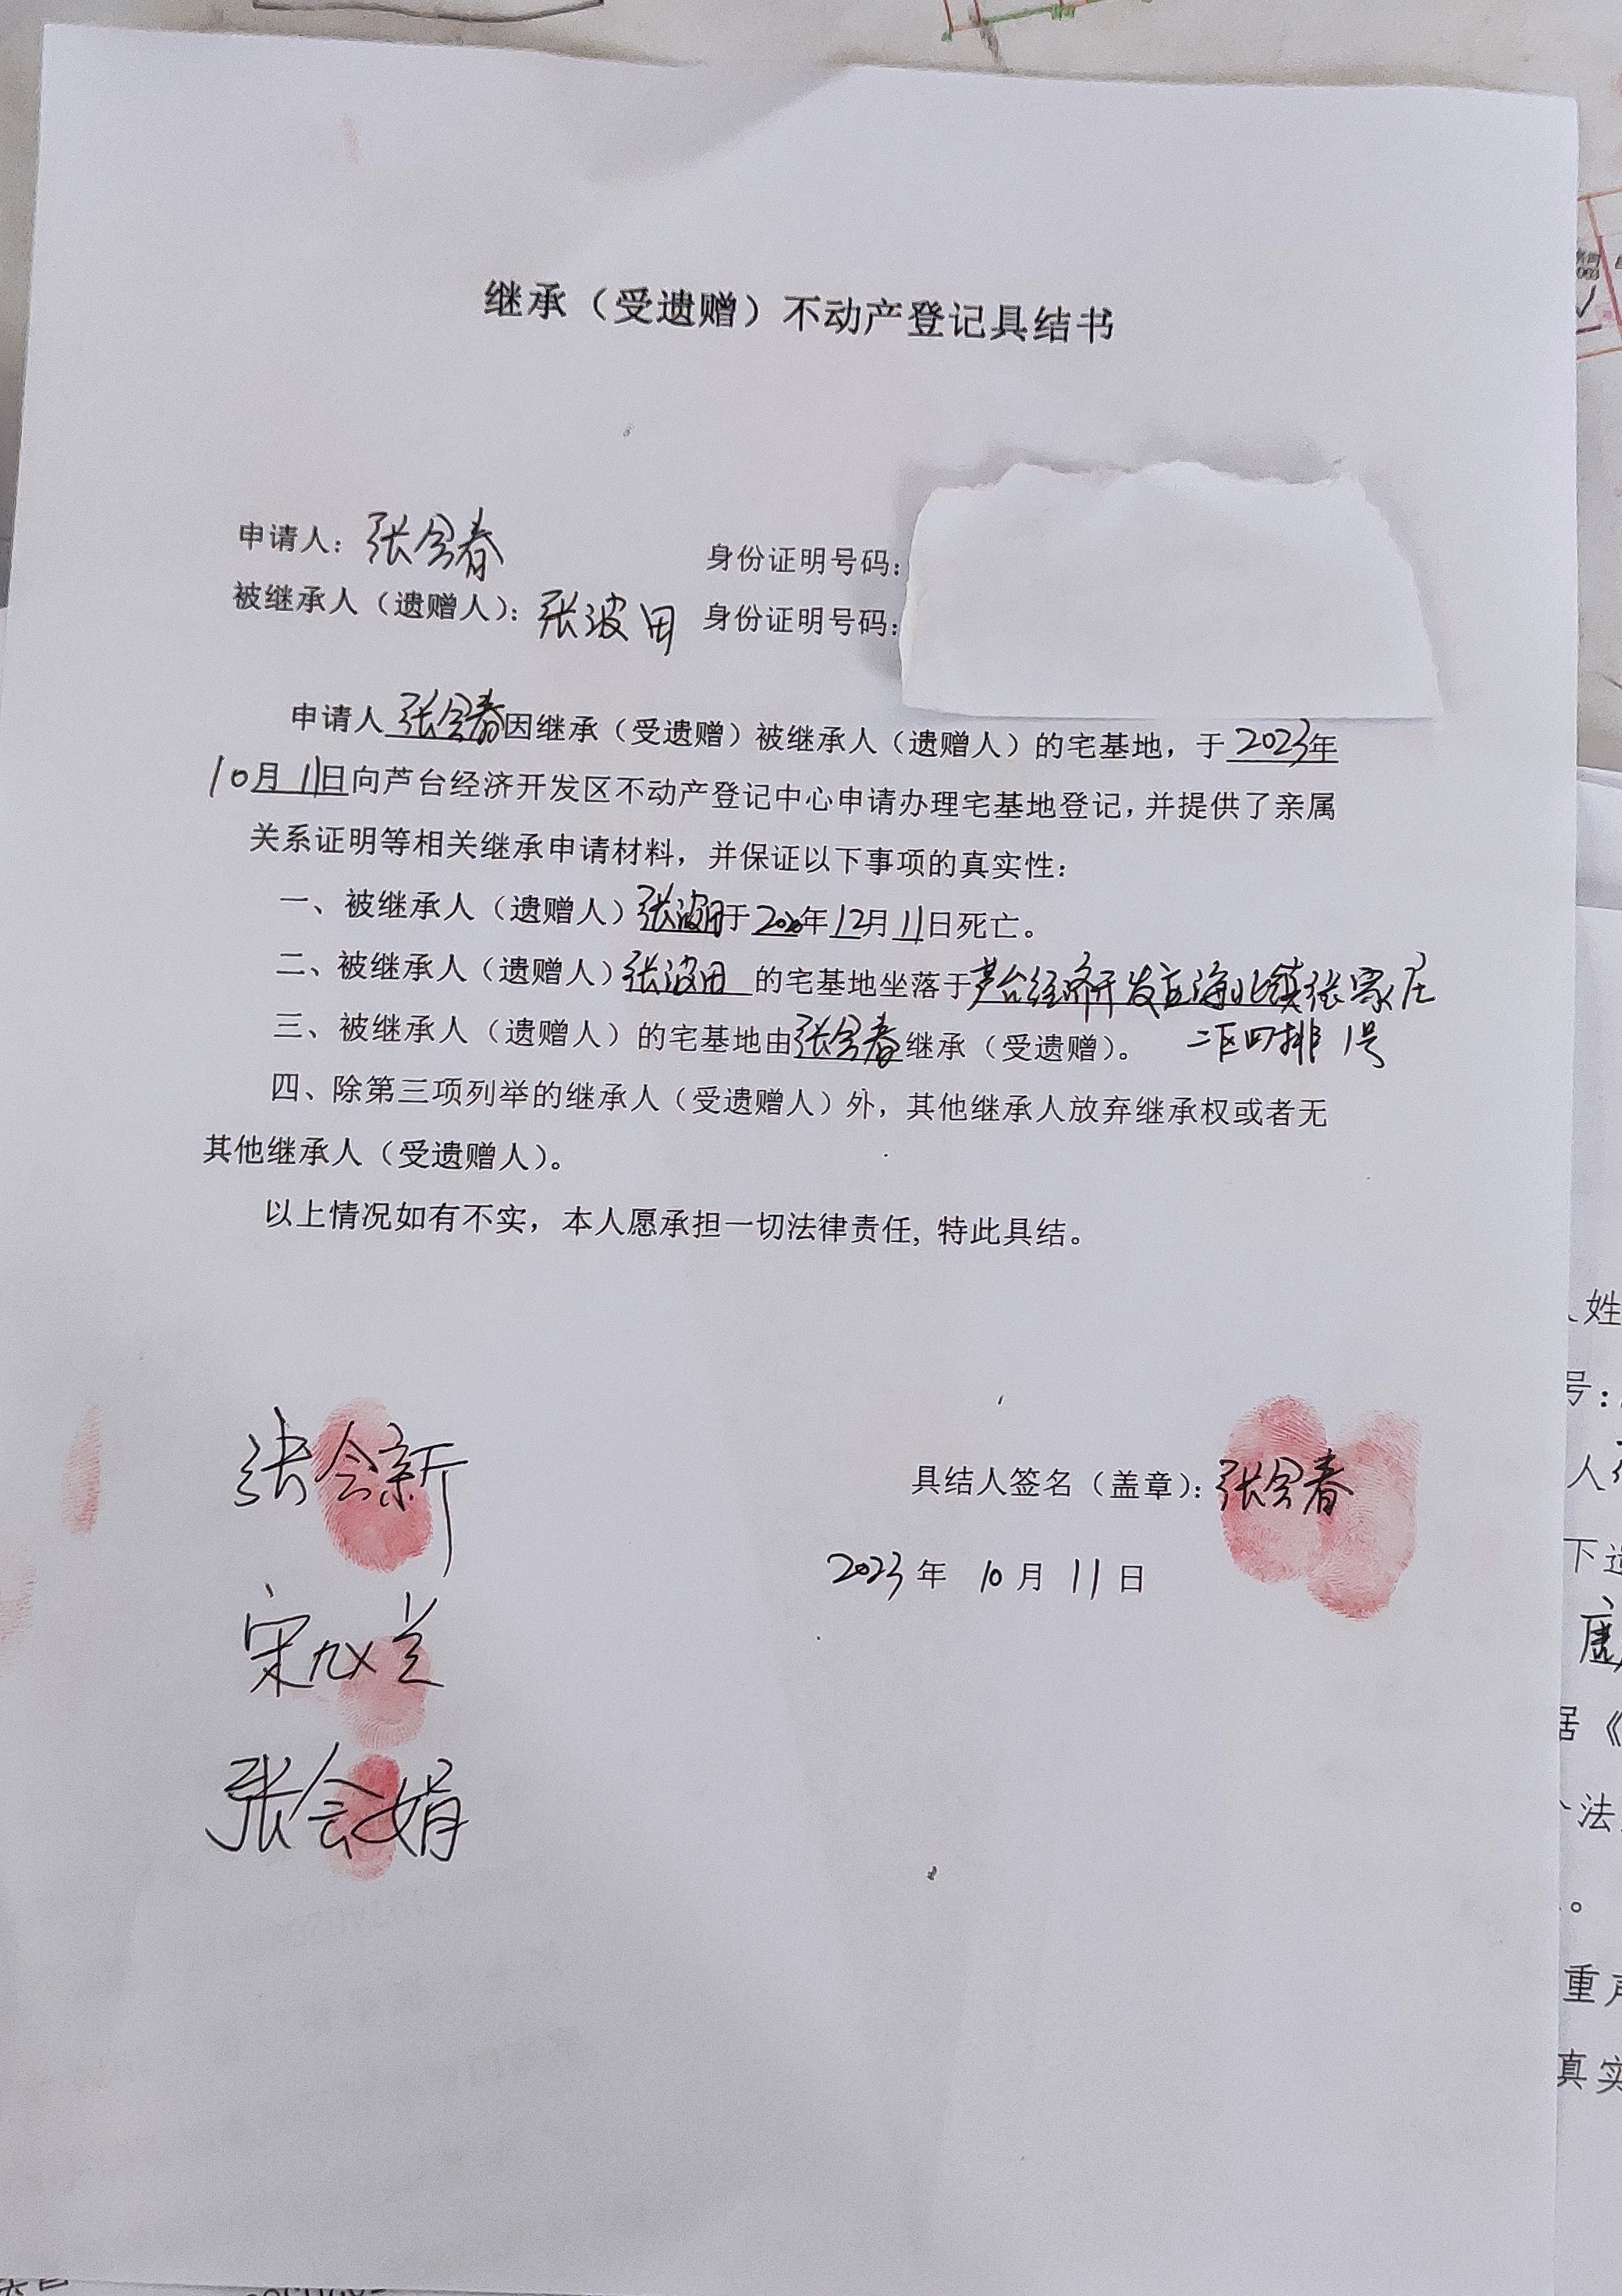 继承（受遗赠）不动产登记具结书
申请人：张会春 身份证明号码：
被继承人（遗赠人）：张波田 身份证明号码：
申请人张会春因继承（受遗赠）被继承人（遗赠人）的宅基地，于2023年
10月11日向芦台经济开发区不动产登记中心申请办理宅基地登记，并提供了亲属
关系证明等相关继承申请材料，并保证以下事项的真实性：
一、被继承人（遗赠人）张波田于2020年12月11日死亡。
二、被继承人（遗赠人）张波田的宅基地坐落于芦台经济开发区海北镇张家庄
三、被继承人（遗赠人）的宅基地由张会春继承（受遗赠）。 二区四排1号
四、除第三项列举的继承人（受遗赠人）外，其他继承人放弃继承权或者无
其他继承人（受遗赠人）。
以上情况如有不实，本人愿承担一切法律责任，特此具结。
张会新
具结人签名（盖章）：张会春
2023年 10月 11日
宋 兰
张会娟
姓
号：
人
下
居《
法
。
重
真实